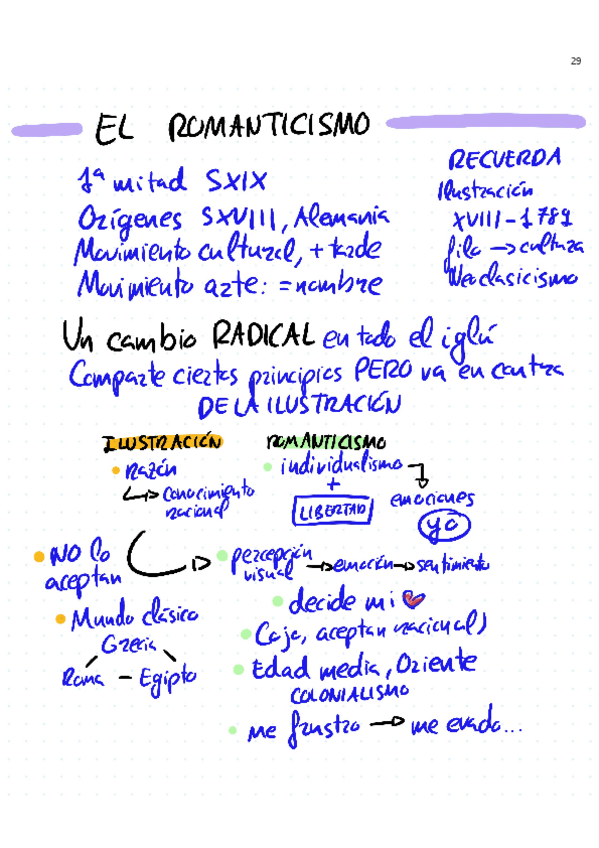 29
EL ROMANTICISMO
1ª mitad SXIX
Orígenes SXVIII, Alemania
Movimiento cultural, + tarde
Movimiento arte: = nombre
RECUERDA
Ilustración
XVIII - 1789
filo → cultura
Neoclasicismo
Un cambio RADICAL en todo el iglú
Comparte ciertos principios PERO va en contra
DE LA ILUSTRACIÓN
ILUSTRACIÓN
• razón
↳ Conocimiento
racional
• NO lo
aceptan
• Mundo clásico
Grecia
Roma – Egipto
ROMANTICISMO
• individualismo
+
LIBERTAD
emociones
yo
• percepción
visual → emoción → sentimiento
• decide mi ❤
• Caja, aceptan racional)
• Edad media, Oriente
COLONIALISMO
• me frustro → me evado...